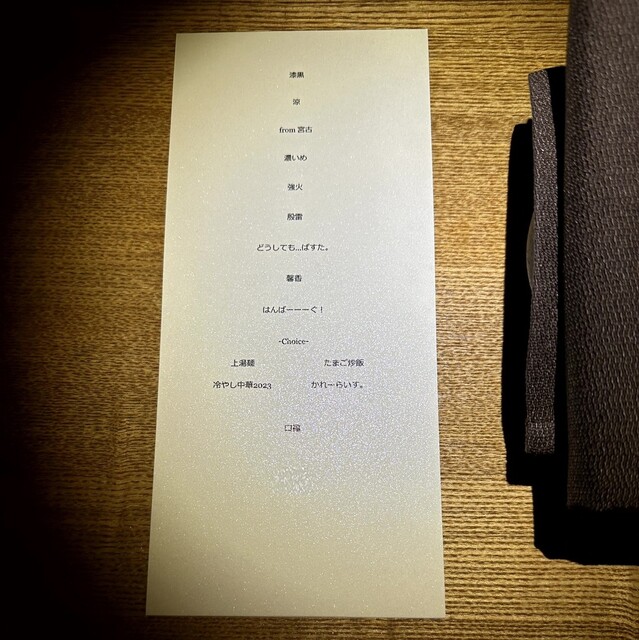 漆黒
涼
from 宮古
濃いめ
強火
殷雷
どうしても...ぱすた。
馨香
はんばーーーぐ！
-Choice-
上湯麺 たまご炒飯
冷やし中華2023 かれーらいす。
口福